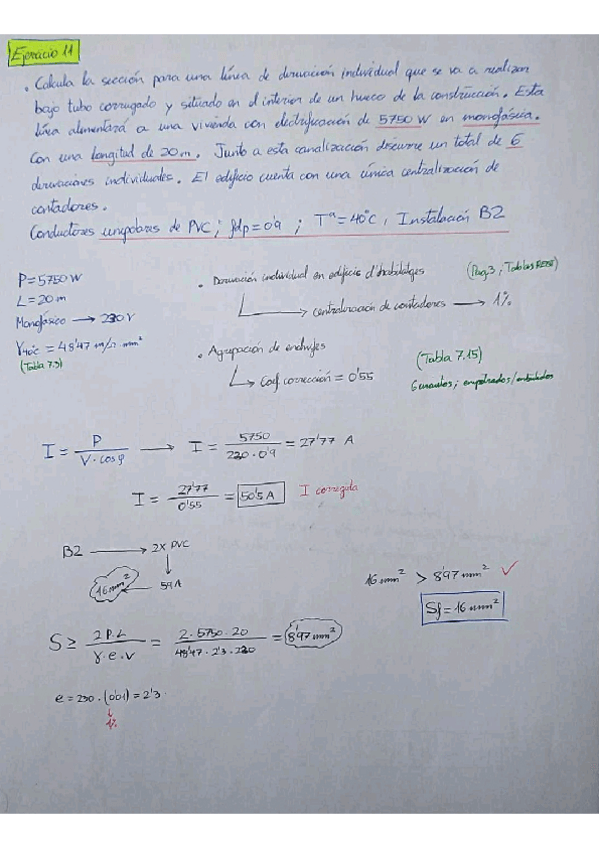 Ejercicio 11
• Calcula la sección para una línea de derivación individual que se va a realizar
bajo tubo corrugado y situado en el interior de un hueco de la construcción. Esta
línea alimentará a una vivienda con electrificación de 5750 W en monofásica.
Con una longitud de 20 m. Junto a esta canalización discurre un total de 6
derivaciones individuales. El edificio cuenta con una única centralización de
contadores.
Conductores unipolares de PVC; fdp = 0'9 ; Tª = 40°C, Instalación B2
P = 5750 W
L = 20 m
Monofásico → 230 V
γ40°C = 48'47 m/Ω mm²
(Tabla 7.3)
• Derivación individual en edificis d'habitatges
(Pag 3, Tablas REBT)
centralización de contadores → 1%
• Agrupación de
(Tabla 7.15)
Coef. corrección = 0'55
6 circuitos; empotrados/
I = P / V · cosφ → I = 5750 / 230 · 0'9 = 27'77 A
I = 27'77 / 0'55 = 50'5 A I corregida
B2 → 2x PVC
59 A
16 mm²
16 mm² > 8'97 mm² ✓
Sf = 16 mm²
S ≥ 2 P.L / γ · e · v = 2 · 5750 · 20 / 48'47 · 2'3 · 230 = 8'97 mm²
e = 230 · (0'01) = 2'3
1%